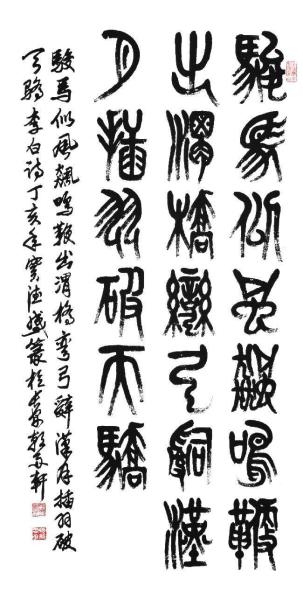 駿馬似風飆鳴鞭
出渭橋彎弓辭漢
月插羽破天驕
駿馬似風飆鳴鞭出渭橋彎弓辭漢月插羽破
天驕李白詩丁亥年篆於軒